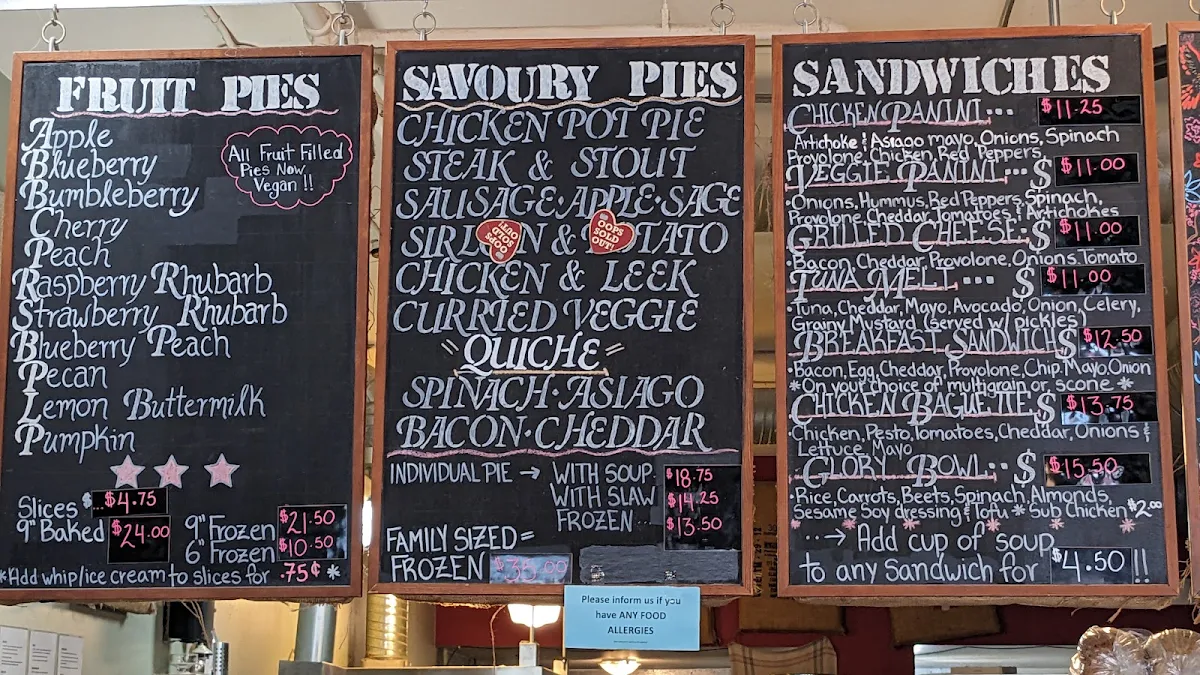 FRUIT PIES
Apple
Blueberry
Bumbleberry
Cherry
Peach
Raspberry Rhubarb
Strawberry Rhubarb
Blueberry Peach
Pecan
Lemon Buttermilk
Pumpkin
All Fruit Filled
Pies Now
Vegan !!
Slices $4.75
9" Baked $24.00
9" Frozen $21.50
6" Frozen $10.50
*Add whip/ice cream to slices for .75¢ *
SAVOURY PIES
CHICKEN POT PIE
STEAK & STOUT
SAUSAGE·APPLE·SAGE
SIRLOIN & POTATO
OOPS SOLD OUT!
OOPS SOLD OUT!
CHICKEN & LEEK
CURRIED VEGGIE
"QUICHE"
SPINACH·ASIAGO
BACON·CHEDDAR
INDIVIDUAL PIE → WITH SOUP $18.75
WITH SLAW $14.25
FROZEN $13.50
FAMILY SIZED =
FROZEN
Please inform us if you
have ANY FOOD
ALLERGIES
SANDWICHES
CHICKEN PANINI... $11.25
Artichoke & Asiago mayo, Onions, Spinach
Provolone, Chicken, Red Peppers
VEGGIE PANINI... $ $11.00
·Onions, Hummus, Red Peppers, Spinach,
Provolone, Cheddar, Tomatoes, & Artichokes
GRILLED CHEESE: $ $11.00
·Bacon, Cheddar, Provolone, Onions, Tomato
TUNA MELT... $ $11.00
·Tuna, Cheddar, Mayo, Avocado, Onion, Celery,
Grainy Mustard (served w/ pickles)
BREAKFAST SANDWICH $ $12.50
·Bacon, Egg, Cheddar, Provolone, Chip. Mayo, Onion
*On your choice of multigrain or scone *
CHICKEN BAGUETTE $ $13.75
·Chicken, Pesto, Tomatoes, Cheddar, Onions &
Lettuce, Mayo
GLORY BOWL.. $ $15.50
·Rice, Carrots, Beets, Spinach, Almonds,
Sesame Soy dressing & Tofu * Sub Chicken $2.00
--→ Add cup of soup
to any sandwich for $4.50 !!